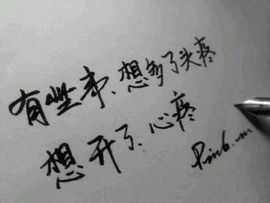 有些事、想多了头疼
想开了、心疼